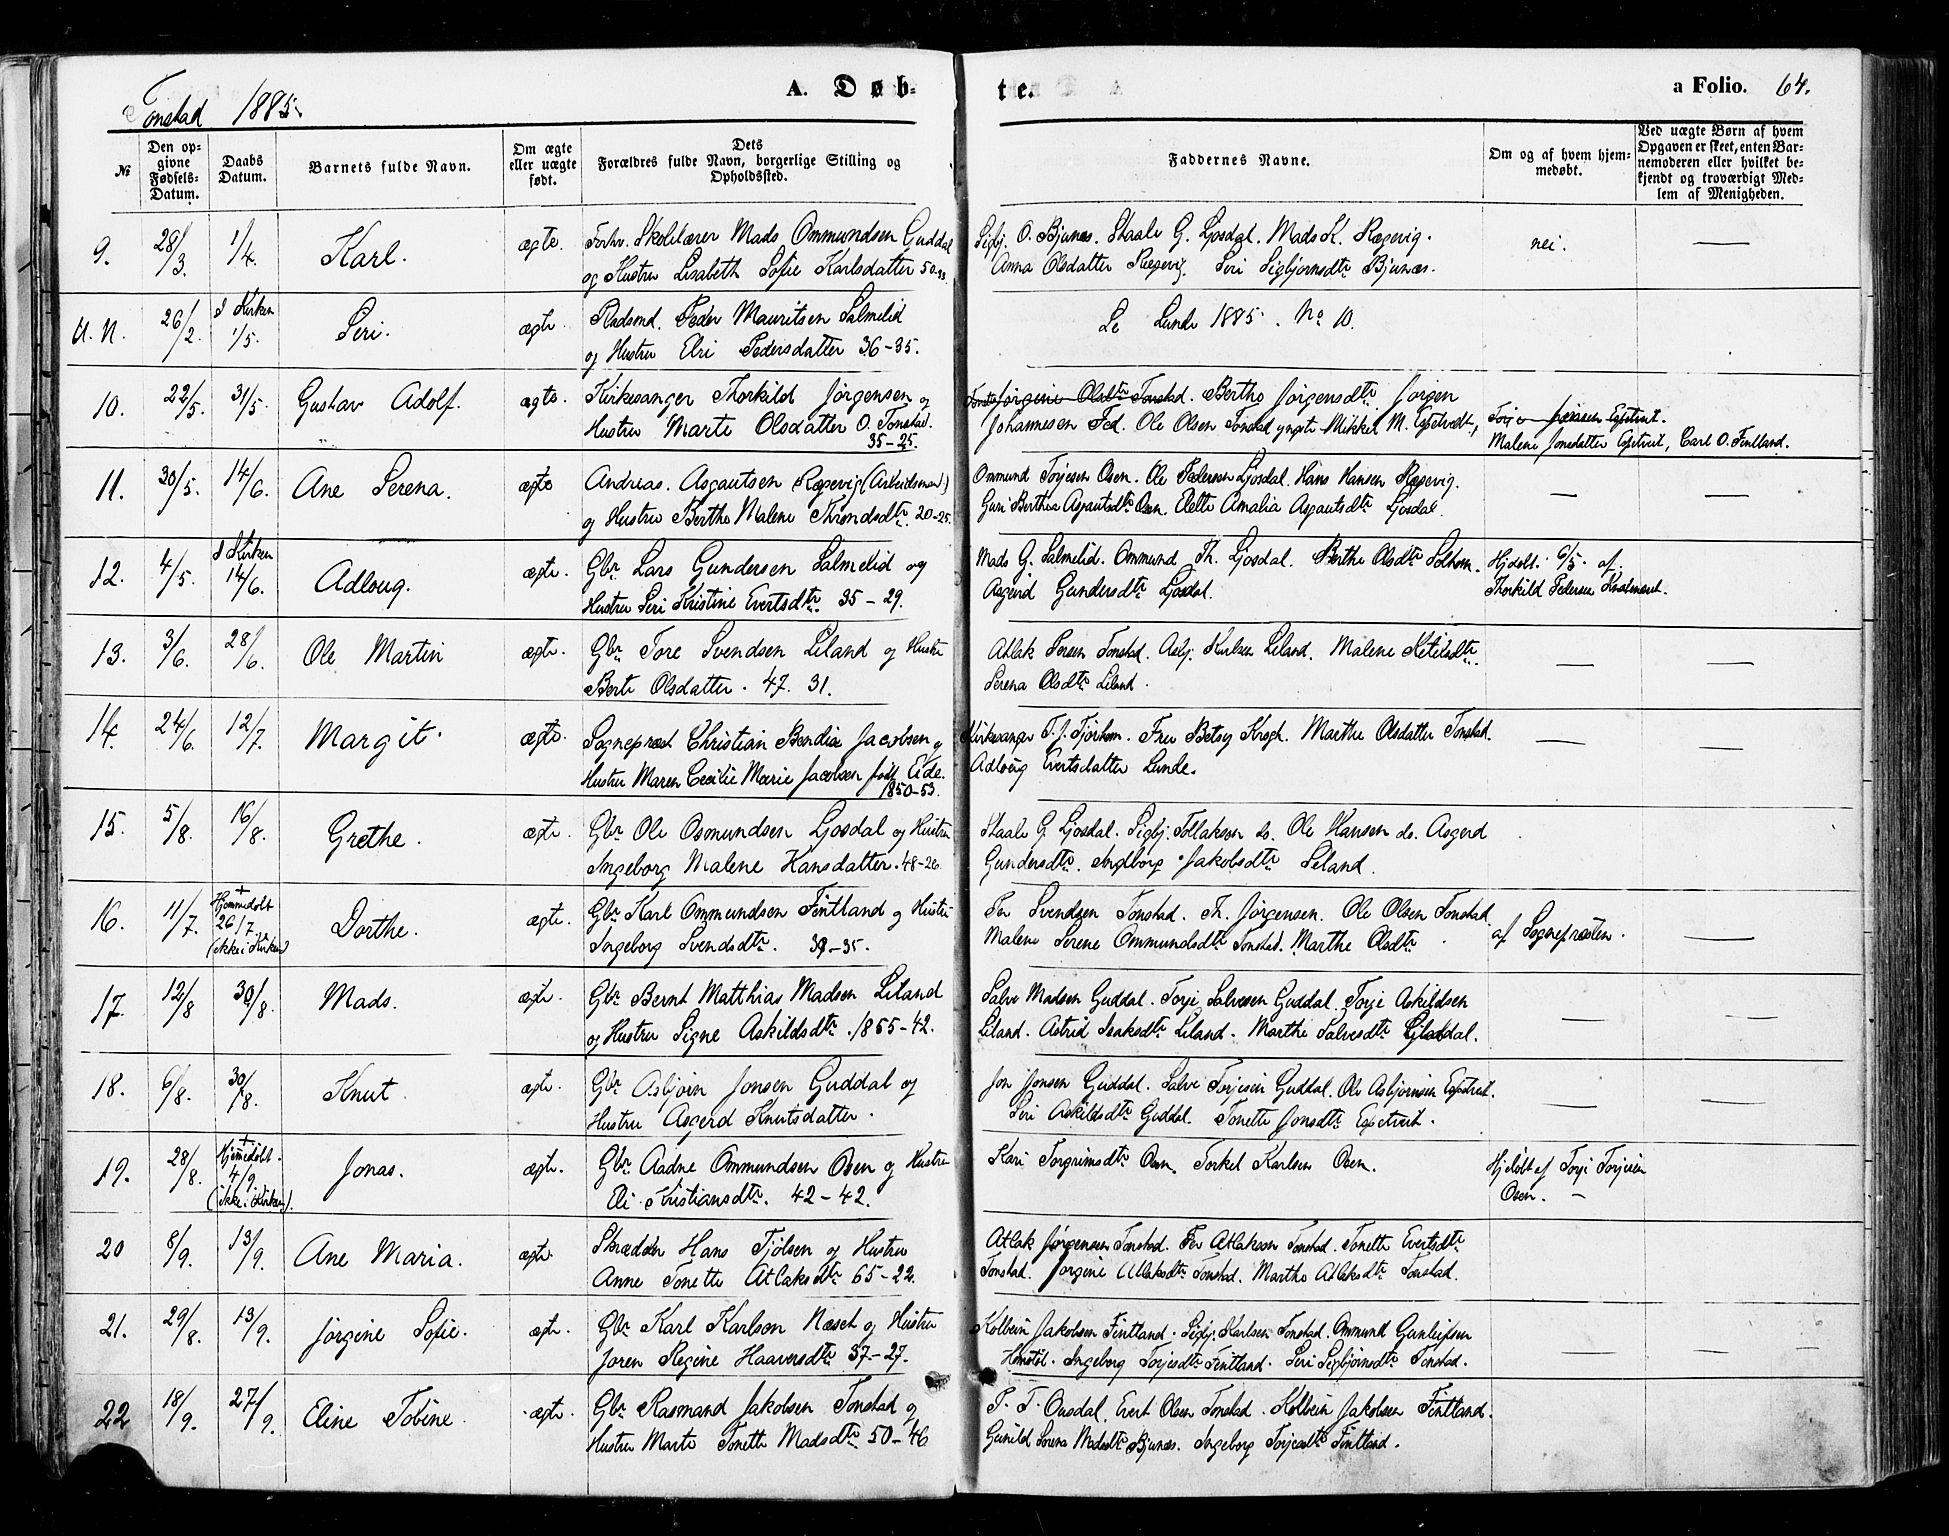 Tonstad 1885.
A. Døb-
te.
a Folio. 64.
№
Den op-
givne
Fødsels-
Datum.
Daabs
Datum.
Barnets fulde Navn.
Om ægte
eller uægte
født.
Dets
Forældres fulde Navn, borgerlige Stilling og
Opholdssted.
Faddernes Navne.
Om og af hvem hjem-
medøbt.
Ved uægte Børn af hvem
Opgaven er skeet, enten Bar-
nemoderen eller hvilket be-
kjendt og troværdigt Med-
lem af Menigheden.
9. 28/3. 1/4. Karl. ægte. Forhv. Skolelærer Mads Ommundsen Guddal
og Hustru Lisabeth Sofie Karlsdatter 50
Sigbj. O. Bjunes. Staale G. Ljosdal. Mads K. Røgevig.
Anna Olsdatter Røgevig. Seri Sigbjørnsdtr Bjunæs.
nei.
U.N. 26/2. I Kirken 1/5. Seri. ægte. Peder Mauritsen Salmelid
og Hustru Elri Pedersdatter 36-35.
Se Lunde 1885. No 10.
10. 22/5. 31/5. Gustav Adolf. ægte. Kirkesanger Thorkild Jørgensen og
Hustru Marte Olsdatter O. Tonstad.
35-25.
Jørgine Olsdtr Tonstad. Berthe Jørgensdtr Jørgen
Johannesen Fed. Ole Olsen Tonstad yngste Mikkel M. Espetvedt,
Malene Jonsdatter Espetveit, Carl O. Fintland.
11. 30/5. 14/6. Ane Serena. ægte Andreas Asgautsen Røgevig (Arbeidsmand)
og Hustru Berthe Malene Throndsdtr. 20-25.
Ommund Torjesen Osen. Ole Pedersen Ljosdal. Hans Hansen Røgevig.
Guri Berthea Asgautsdtr Osen. Elette Amalia Asgautsdtr Ljosdal.
12. 4/5. I Kirken 14/6. Adloug. ægte. Gbr. Lars Gundersen Salmelid og
Hustru Seri Kristine Evertsdtr. 35-29.
Mads G. Salmelid. Ommund Th. Ljosdal. Berthe Olsdtr Solhom.
Asgerd Gundersdtr Ljosdal.
Hjdøbt. 6/5. af
Thorkild Pedersen
13. 3/6. 28/6. Ole Martin ægte. Gbr. Tore Svendsen Liland og Hustru
Berte Olsdatter. 47. 31.
Atlak Tonstad. Asbj. Karlsen Liland. Malene Ketilsdtr.
Serena Olsdtr Liland.
14. 24/6. 12/7. Margit. ægte. Sognepræst Christian Bendix Jacobsen og
Hustru Maren Cecilie Marie Jacobsen født Eide.
1850-53.
Kirkesanger T. J. Tjørhom. Fru Betsy Krogh. Marthe Olsdatter Tonstad.
Adloug Evertsdatter Lunde.
15. 5/8. 16/8. Grethe. ægte. Gbr. Ole Osmundsen Ljosdal og Hustru
Ingeborg Malene Hansdatter. 48-26
Staale G. Ljosdal. Sigbj. Tollaksen do. Ole Hansen do. Asgerd
Gundersdtr. Ingborg Jakobsdtr Liland.
16. 11/7. + Hjemmedøbt 26/7. (ikke i Kirken) Dorthe. ægte. Gbr. Karl Ommundsen Fintland og Hustru
Ingeborg Svendsdtr. 39-35.
Per Svendsen Tonstad. Th. Jørgensen. Ole Olsen Tonstad
Malene Serene Ommundsdtr Tonstad. Marthe Olsdtr
af Sognepræsten.
17. 12/8 30/8. Mads. ægte. Gbr. Bernt Matthias Madsen Liland
og Hustru Signe Askildsdtr. 1855-42.
Salve Madsen Guddal. Torje Salvesen Guddal. Torje Askildsen
Liland. Astrid Isaksdtr Liland. Marthe Salvesdtr
18. 6/8. 30/8. Knut ægte. Gbr. Asbjørn Jonsen Guddal og
Hustru Asgerd Knutsdatter.
Jon Jonsen Guddal. Salve Torjesen Guddal. Ole Asbjørnsen Espetveit.
Seri Askildsdtr Guddal. Tonette Jonsdtr Espetveit.
19. 28/8. + Hjemmedøbt. 4/9. (ikke i Kirken). Jonas. ægte. Gbr. Aadne Ommundsen Osen og Hustru
Eli Kristiansdtr. 42-42.
Kari Torgrimsdtr Osen. Torkel Karlsen Osen.
Hjdøbt af Torje Torjesen
Osen.
20 8/9. 13/9. Ane Maria. ægte. Skrædder Hans Tjølsen og Hustru
Anne Tonette Atlaksdtr 65-22.
Atlak Jørgensen Tonstad. Per Atlaksen Tonstad. Tonette Evertsdtr
Tonstad. Jorgine Atlaksdtr Tonstad. Marthe Atlaksdtr Tonstad.
21. 29/8. 13/9. Jørgine Sofie. ægte. Gbr. Karl Karlson Næset og Hustru
Joren Regine Haaversdtr 37-27.
Kolbein Jakobsen Fintland. Sigbj. Karlsen Tonstad. Ommund Gunleifsen
Homstøl. Ingeborg Torjesdtr Fintland. Seri Sigbjørnsdtr Tonstad.
22 18/9. 27/9. Eline Tobine. ægte. Gbr. Rasmund Jakobsen Tonstad og
Hustru Marte Tonette Madsdtr 50-46
T. T. Ousdal. Evert Olsen Tonstad. Kolbein Jakobsen Fintland.
Gunild Serena Madsdtr Bjunes. Ingeborg Torjesdtr Fintland.